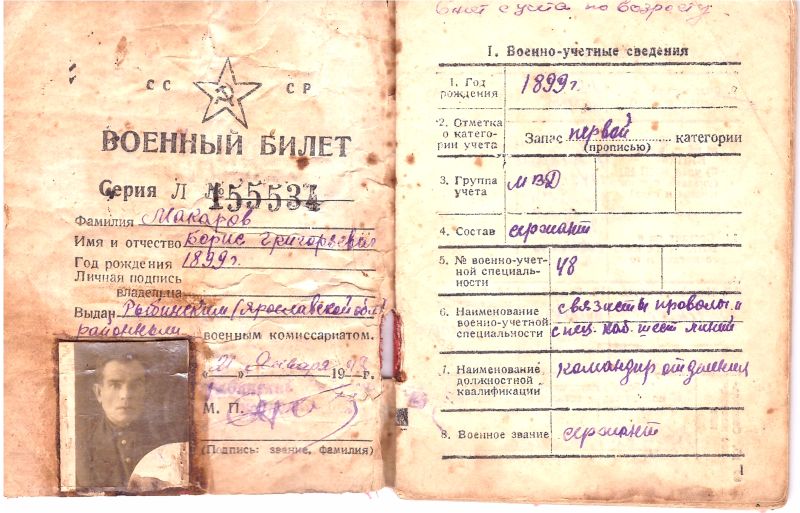 СС СР
ВОЕННЫЙ БИЛЕТ
Серия Л № 155534
Фамилия Макаров
Имя и отчество Борис Григорьевич
Год рождения 1899 г.
Личная подпись
владельца
Выдан Рыбинским (Ярославской обл)
районным военным комиссариатом.
"21" Января 19 г.
М. П.
(Подпись: звание, фамилия)
снят с учета по возрасту
I. Военно-учетные сведения
1. Год
рождения
1899 г.
2. Отметка
о катего-
рии учета
Запас первой категории
(прописью)
3. Группа
учета
МВД
4. Состав
сержант
5. № военно-учет-
ной специаль-
ности
48
6. Наименование
военно-учетной
специальности
связисты проволы и
спец. каб. шест линий
7. Наименование
должностной
квалификации
командир отделения
8. Военное звание
сержант
1